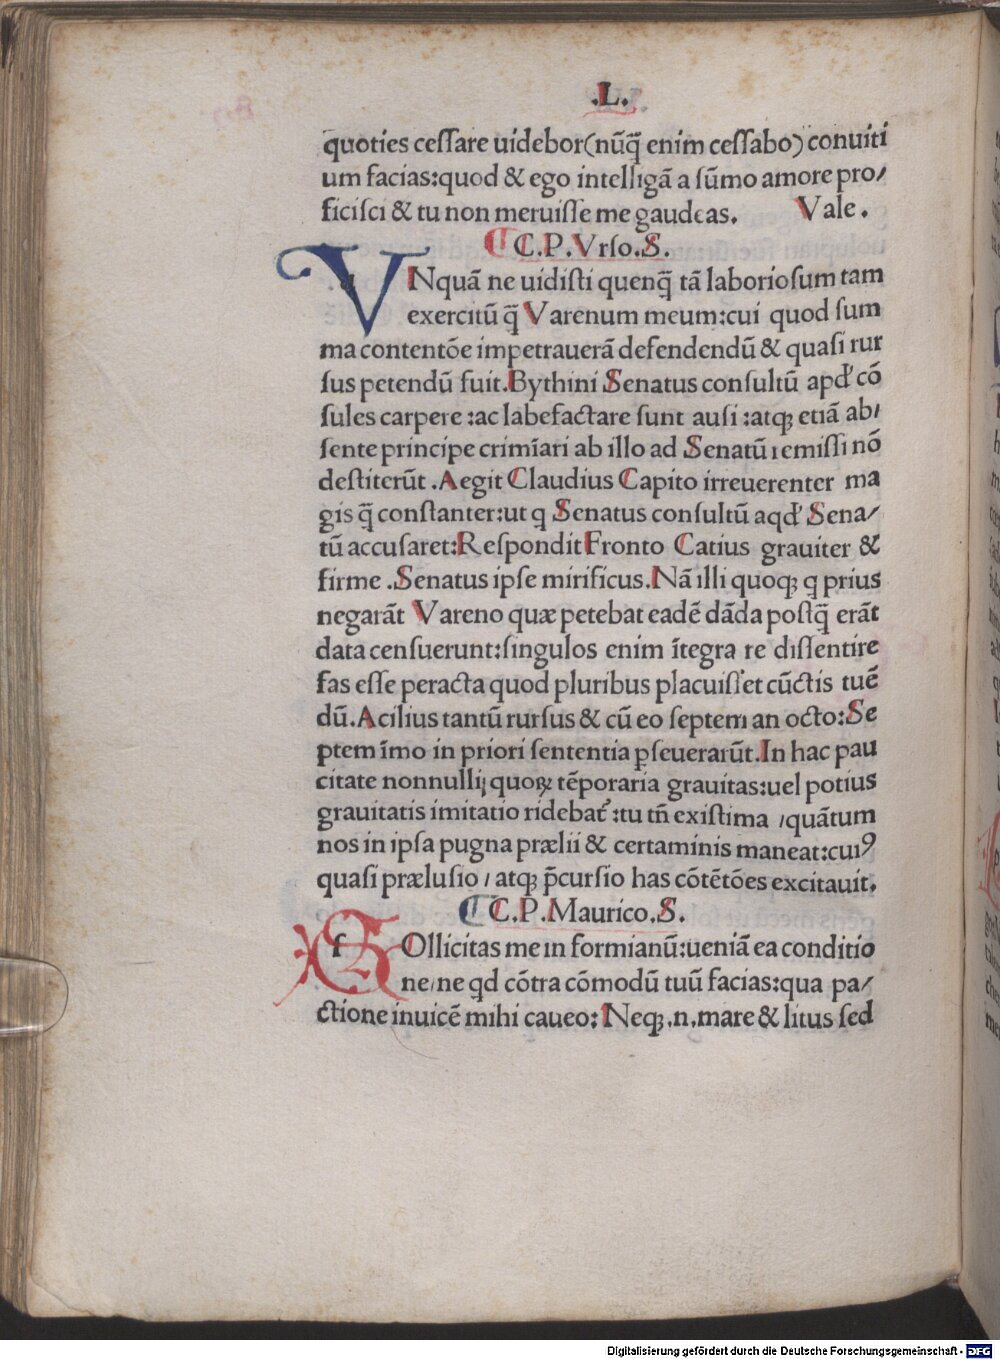 .L.
quoties ceſſare uidebor(nũq̃ enim ceſſabo) conuiti
um facias:quod & ego intelligã a ſũmo amore pro/
ficiſci & tu non meruiſſe me gaudeas. Vale .
C C.P.Vrſo.S.
V u Nquã ne uidiſti quenq̃ tã laborioſum tam
exercitũ q̃ Varenum meum:cui quod ſum
ma contentõe impetrauerã defendendũ & quaſi rur
ſus petendũ fuit.Bythini Senatus conſultũ apđ cõ
ſules carpere :ac labefactare ſunt auſi :atqꝫ etiã ab/
ſente principe crimĩari ab illo ad Senatũ remiſſi nõ
deſtiterũt .Aegit Claudius Capito irreuerenter ma
gis q̃ conſtanter:ut q Senatus conſultũ aqđ Sena/
tũ accuſaret:Reſpondit Fronto Catius grauiter &
firme .Senatus ipſe mirificus.Nã illi quoqꝫ q prius
negarãt Vareno quæ petebat eadẽ dãda poſtq̃ erãt
data cenſuerunt:ſingulos enim ĩtegra re diſſentire
fas eſſe peracta quod pluribus placuiſſet cũctis tuẽ
dũ.Acilius tantũ rurſus & cũ eo ſeptem an octo:Se
ptem ĩmo in priori ſententia ꝑſeuerarũt.In hac pau
citate nonnullij quoꝝ tẽporaria grauitas:uel potius
grauitatis imitatio ridebat᷑ :tu tñ exiſtima /quãtum
nos in ipſa pugna prælii & certaminis maneat:cuiꝰ
quaſi præluſio / atqꝫ p̃curſio has cõtẽtões excitauit.
C C.P.Maurico.S.
S f Ollicitas me in formianũ:ueniã ea conditio
ne/ne qd cõtra cõmodũ tuũ facias:qua pa/
ctione inuicẽ mihi caueo: Neqꝫ.n.mare & litus ſed
Digitalisierung gefördert durch die Deutsche Forschungsgemeinschaft - DFG